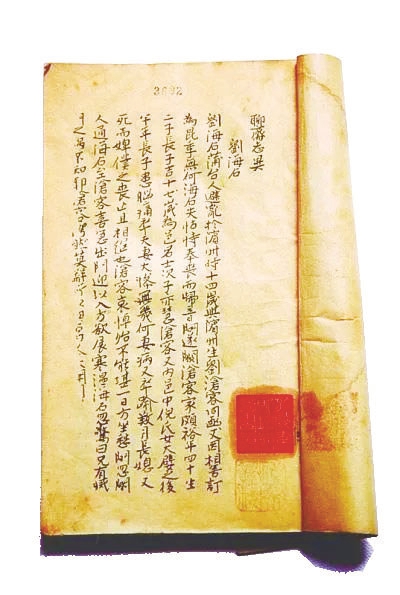 3692
聊齋志異
劉海石
劉海石蒲台人避亂於濱州時十四歲與濱州生劉滄客同函丈因相善訂
為昆季無何海石失怙恃奉喪而歸音問遂闕滄客家頗裕年四十生
二子長子吉十七歲為邑名士次子亦慧滄客又內邑中倪氏女大嬖之後
半年長子患腦痛卒夫妻大慘無幾何妻病又卒踰數月長媳又
死而婢僕之喪亡且相繼也滄客哀悼殆不能堪一日方坐愁間忽閽
人通海石至滄客喜急出門迎以入方欲展寒溫海石忽驚曰兄有滅
門之禍不知耶滄客愕然莫解